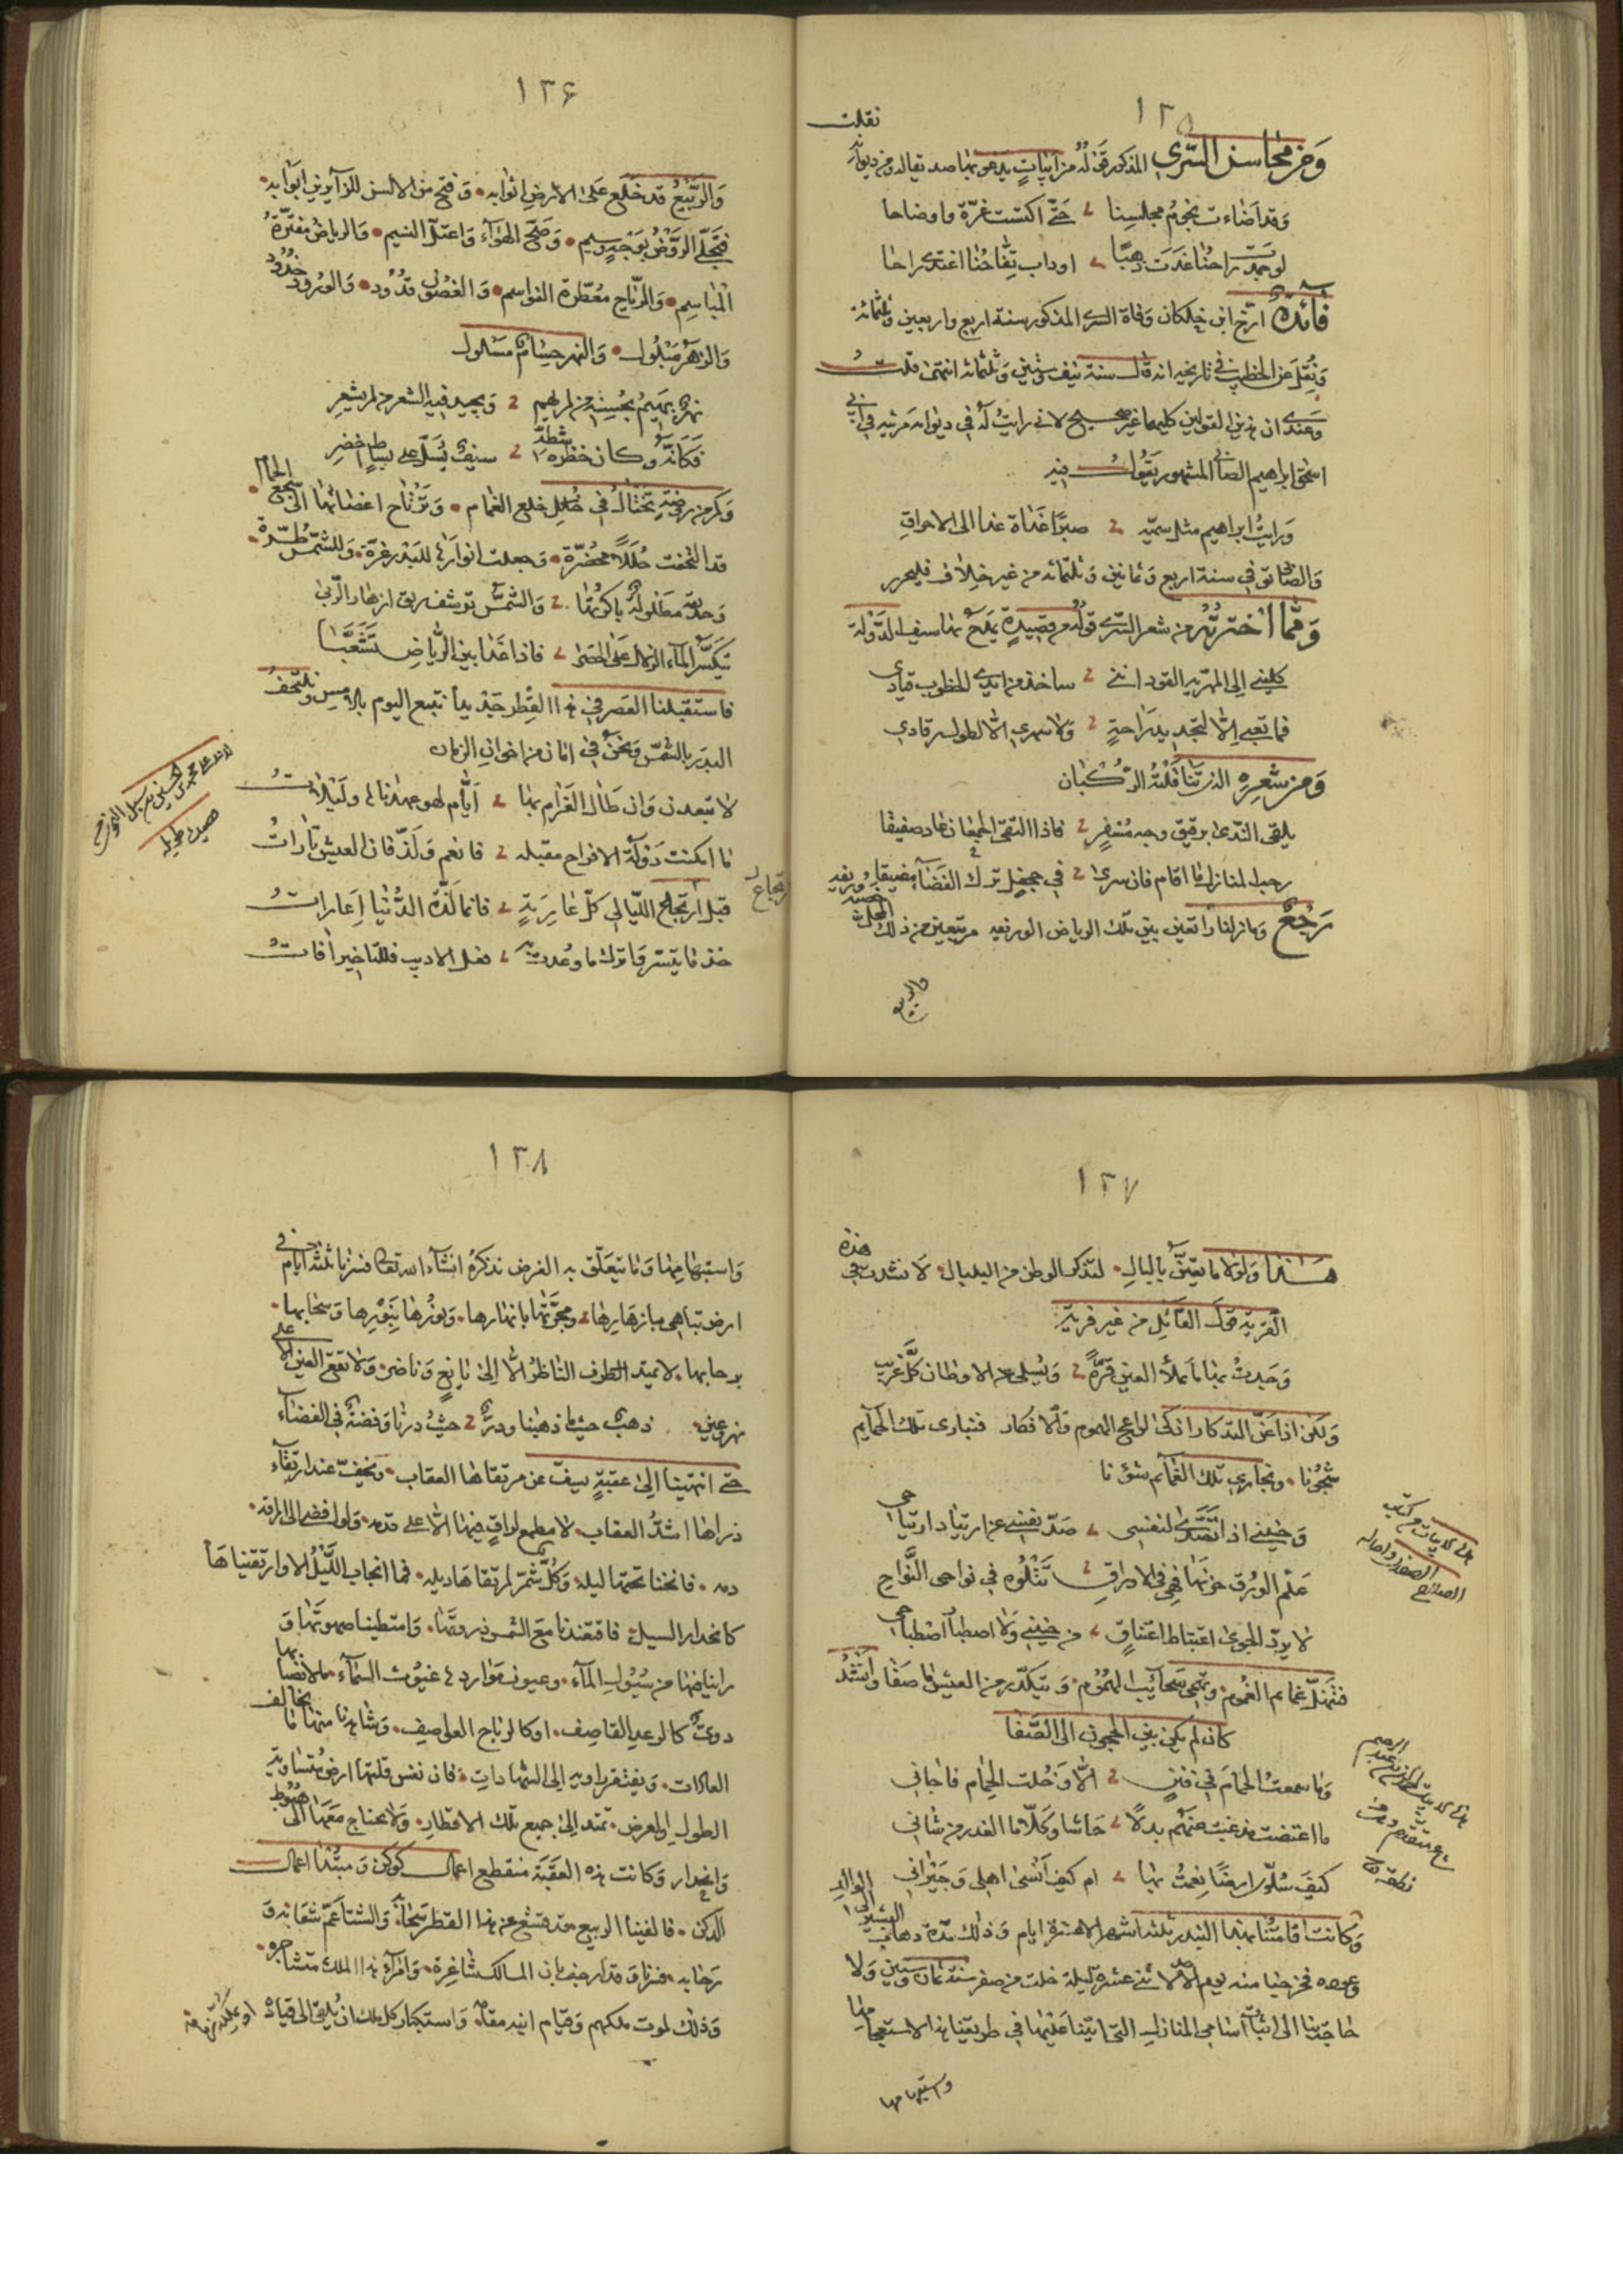 ١٣٥
نقلت
وَمِن محاسن السَّري المذكور قَولُهُ من ابيَاتٍ يدعو بها صديقاله ومن ديوانه
وَقد اَضاءت نجومُ مجلسِنا حَتّى اكتست غرّة واوضاحا
لو جمدَت راحُنا غَدَت ذهبًا اوذاب تفّاحُنا اغتدى راحا
فائدة ارّخ ابن خلكان وَفاة السرى المذكور سنة اربع واربعين وثلثمائة
وَنُقل عن الخطيب في تاريخه انه قال سنة نيف وستين وَثلثمائة انتهى قلتُ
وَعندى ان هذين القولين كليهما غير صحيح لانى رايتُ لهُ في ديوانه مرثيه في ابى
اسحق ابراهيم الصابى المشهور يَقُول فيه
وَرايتُ ابراهيم مثل سميّه صبرًا غَدَاة غدا الى الاحراقِ
وَالصابى توفى سنة اربع وَثمانين وَثلثمائه من غير خِلاف فليحرر
وَمِمّا اختَرتُهُ من شعر السّرى قولُهُ من قصيدةٍ يمدَح بها سيف الدَّولة
كلينى اِلى المهريّه القود اننى ساخذ من ايدى الخطوب قيادى
فما تعبى اِلّا لتجديد رَاحةٍ وَلا سهرى الّا لطول رقادى
وَمِن شعرِهِ الذى تنَاقَلَتْهُ الرُّكبَان
يلقى النّدى برقيق وجه مُسْفِرٍ فاذا التقى الجمعان عاد صفيقا
رحب المنازل ما اقام فان سرى فى جحفلٍ ترك الفضآء مضيقا
رَجْعٌ وَمازلنا رَاتعين بين تلك الرياض الوريقه مرتبعين من ذلك المحل
والربيع
١٣٦
وَالرَّبيعُ قد خَلَع عَلى الارض اثوابه وَفتح من الالسن للزآيرين ابوَابه
فتَجلّى الرّوضُ بوَجهٍ وسيم وَصَحّ الهوَآء وَاعتلّ النسيم وَالرياضُ مفترّةُ
المَبَاسِم وَالرّياح مُعَطّرة النوَاسم وَالغصُون قدُود وَالورُود خدُود
وَالزهر مَبْلُول وَالنهر حسَام مسَلول
نهرٌ يهيمُ بحُسنِه من لم يهِم وَيجيد فيه الشعر من لم يشعرِ
فَكَانّهُ وَكان خضرة شطّهِ سيفٌ يُسَلّ على بساطٍ اخضرِ
وَكم من روضةٍ تختَالُ فى حُلل خلع الغمام وَترتَاح اعضَائها الى سَجع الحمَام
قد التحفت حُلَلًا مخضرّة وَجعلت انوَارهَا للبَدر غرّة وَللشّمس طُرّة
وَحديقةٍ مطلُولةٍ باكرتُها وَالشّمسُ ترشف ريق ازهار الرّبى
يتكَسّر المآء الزلال عَلى الحصَى فاذا غدَا بين الرّياضِ تشَعَّبَا
فاستقبلنا القصر فى هذا القِطر جَذيدًا نتبع اليوم بالامس وَنلتحفُ
البدرَ بالشمسِ وَنحنُ فى امان من اخوان الزمان
لا تبعدن وَان طَال الغَرَام بهَا اَيّام لهو عهدناها وليلاتُ
ما امكنت دَولَة الافراح مقبله فانعم وَلَذّ فان العيش تارَاتُ
قبل اِرتجاع الليّالى كلّ عَاريَةٍ فانما لَذّة الدُّنيا اِعاراتُ
خذ مَا تيسّر وَاترك ما وُعدت به فعل الاديب فللتاخير آفاتُ
قصيده طويله
١٣٧
هَذا وَلولا ما يتعلّقُ بالبال لتذكر الوطن من البلبال لَانشدت فى هذه
القريةِ قولَ القائل من غير فريةٍ
وَجدتُ بها ما يملأُ العين قرّةً وَيُسلى عن الاوطان كلَّ غريب
وَلكن اذا عَنَّ التذكار اذكى لواعج الهموم وَالافكار فتبارى تلك الحمايم
شجُونَا وَتجارى تلك الغمآئم شؤنا
وَحنينى اذا تصَدّى لنفسى صَدّ نفسى عن ارتياد ارتياحى
علّم الورُق حزنهَا فهى فى الاوراق تَتْلُوه في نواحى النَّواحِ
لا يردّ الجوى اغتباط اغتباقٍ من حنينى وَلا اصطبار اصطباحى
فتنهلّ غمايم الغموم وَتهمى سَحآئب الهمُوم وَيتكدّر من العيش مَا صفا وَاُنشدُ
كان لم يكن بين الحجون الى الصّفا
وَما سمعتُ الحمَامَ فى فننٍ الّا وَخُلت الحِمَام فاجانى
ما اعتضت مذ غبت عنكُم بدلًا حَاشا وَكَلّا ما الغدر من شانى
كيفَ سُلوّى ارضًا نعمتُ بها ام كيف اَنسى اهلى وَجيرانى
وَكانت اقامتُنا بهذا البندر ثلثة اشهر الا عشرة ايام وَذلك مدّة ذهاب البشير الى الوالد
وَعوده فخرجنا منه يوم الاحد لاثنى عشرة ليلة خلت من صفر سنة ثمان وَستين وَلا
حَاجَة بنا الى اثباتِ اسَامى المنازل التى اتينا عَليهَا فى طريقنا هذا لاستعجامها
واستبهامها
١٣٨
وَاستبهامِهَا وَمَا يتعَلّق به الغرض نذكرهُ انشآء الله تعالى فسرنا ثلثة ايام فى
ارضٍ تباهى بازهَارِها وَمجرّتها بانهارها وَنورُها بنَوْرِها وَسحابها
برحابها لا يمتد الطرف النَاظرُ اِلّا اِلى يانعٍ وَناضر وَلا تقع العين الّا على
نهرٍ وعين ذهبٌ حيثما ذهبنا ودرٌّ حيثُ درنا وَفضّة فى الفضآء
حتى انتهينا اِلى عقبةٍ يسفّ عن مرتقاها العقاب وَيخفّ عند ارتقآء
ذراها اشدُّ العقاب لا مطمع لراقٍ فيها اِلّا على قدمه وَلو افضى الى اراقة
دمه فانخنا تحتها ليلة وَكُلٌّ شمّر لمرتقاهَا ذيله فما انجاب اللّيلُ الا وارتقيناهَا
كانحدار السيل فاقتعدنا مَع الشمس ذروتها وَامتطينا صهوَتها وَ
راينا فيها من سُيُول المآء وعيون مَواردها غيُوث السّمآء ما لانصبابها
دوىّ كالرعد القاصف اوكالرياح العواصف وَشاهدنا منها ما يخالف
العادات وَيفتقر راويه اِلى الشهاداتِ فان نفس قلتها ارض متساوية
الطول والعرض تمتد اِلى جميع تلك الاقطار وَلا يحتاج مَعها الى هبُوط
وَانحدار وَكانت هذه العَقَبة منقطع اعمال كوكن وَمبتدا اعمال
الدكن فالفينا الربيع قد قشع عن هذا القطر سَحابَه وَالشتا عَمّ شعَابه وَ
رحَابه فسرنا وَقد ارجف بان المسالك شاغرة وَامرآء هذا الملك متشاجره
وَذلك لموت ملكهم وَقيام ابنه مقامه وَاستكبار كل ملك ان يُلقى الى قياده